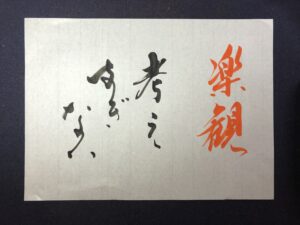 楽観
考え
すぎ
ない